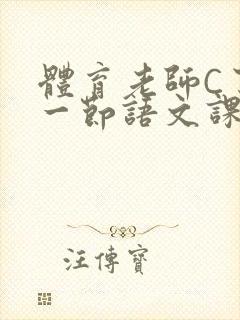 體育老師C
一節語文課
汪傳寶